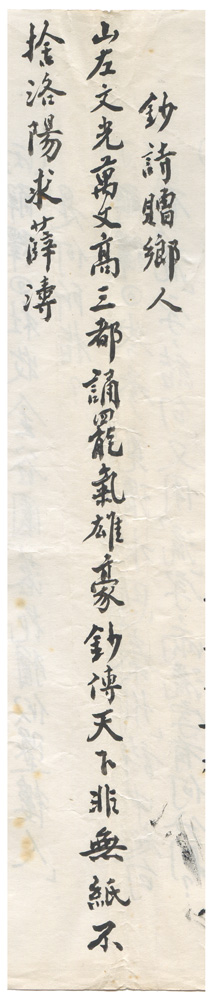 鈔詩贈鄉人
山左文光萬丈高三都誦罷氣雄豪鈔傳天下非無紙不
捨洛陽求薛濤